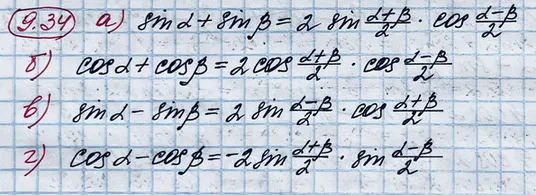 9.34 а) sin α + sin β = 2 sin (α+β)/2 · cos (α-β)/2
б) cos α + cos β = 2 cos (α+β)/2 · cos (α-β)/2
в) sin α - sin β = 2 sin (α-β)/2 · cos (α+β)/2
г) cos α - cos β = -2 sin (α+β)/2 · sin (α-β)/2